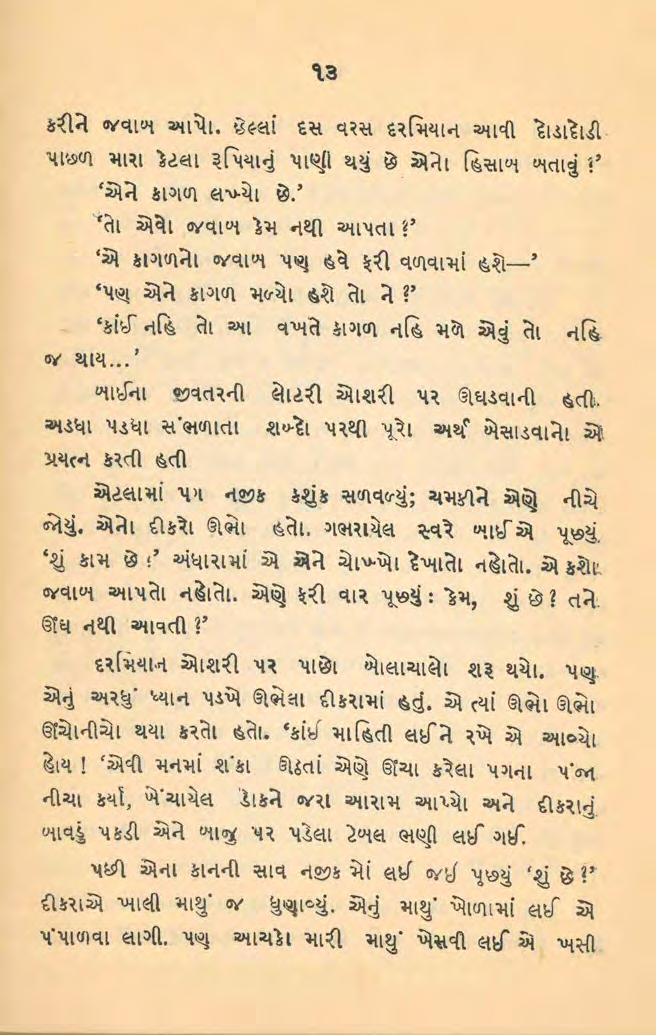 ૧૩
કરીને જવાબ આપો. છેલ્લાં દસ વરસ દરમિયાન આવી દોડાદોડી
પાછળ મારા કેટલા રૂપિયાનું પાણી થયું છે એનો હિસાબ બતાવું ?’
‘એને કાગળ લખ્યો છે.’
‘તો એવો જવાબ કેમ નથી આપતા ?’
‘એ કાગળનો જવાબ પણ હવે ફરી વળવામાં હશે—’
‘પણ એને કાગળ મળ્યો હશે તો ને ?’
‘કાંઈ નહિ તો આ વખતે કાગળ નહિ મળે એવું તો નહિ
જ થાય...’
બાઈના જીવતરની લોટરી ઓશરી પર ઊઘડવાની હતી.
અડધા પડધા સંભળાતા શબ્દો પરથી પૂરો અર્થ બેસાડવાનો એ
પ્રયત્ન કરતી હતી
એટલામાં પગ નજીક કશુંક સળવળ્યું; ચમકીને એણે નીચે
જોયું. એનો દીકરો ઊભો હતો. ગભરાયેલ સ્વરે બાઈ એ પૂછ્યું
‘શું કામ છે ?’ અંધારામાં એ એને ચોખ્ખો દેખાતો નહોતો. એ કશો
જવાબ આપતો નહોતો. એણે ફરી વાર પૂછ્યું : કેમ, શું છે ? તને
ઊંઘ નથી આવતી ?’
દરમિયાન ઓશરી પર પાછો બોલાચાલો શરૂ થયો. પણ
એનું અરધું ધ્યાન પડખે ઊભેલા દીકરામાં હતું. એ ત્યાં ઊભો ઊભો
ઊંચોનીચો થયા કરતો હતો. ‘કાંઈ માહિતી લઈને રખે એ આવ્યો
હોય ! ‘એવી મનમાં શંકા ઊઠતાં એણે ઊંચા કરેલા પગના પંજા
નીચા કર્યા, ખેંચાયેલ ડોકને જરા આરામ આપ્યો અને દીકરાનું
બાવડું પકડી એને બાજુ પર પડેલા ટેબલ ભણી લઈ ગઈ.
પછી એના કાનની સાવ નજીક મોં લઈ જઈ પૂછ્યું ‘શું છે ?’
દીકરાએ ખાલી માથું જ ધુણાવ્યું. એનું માથું ખોળામાં લઈ એ
પંપાળવા લાગી. પણ આચકો મારી માથું ખેસવી લઈ એ ખસી